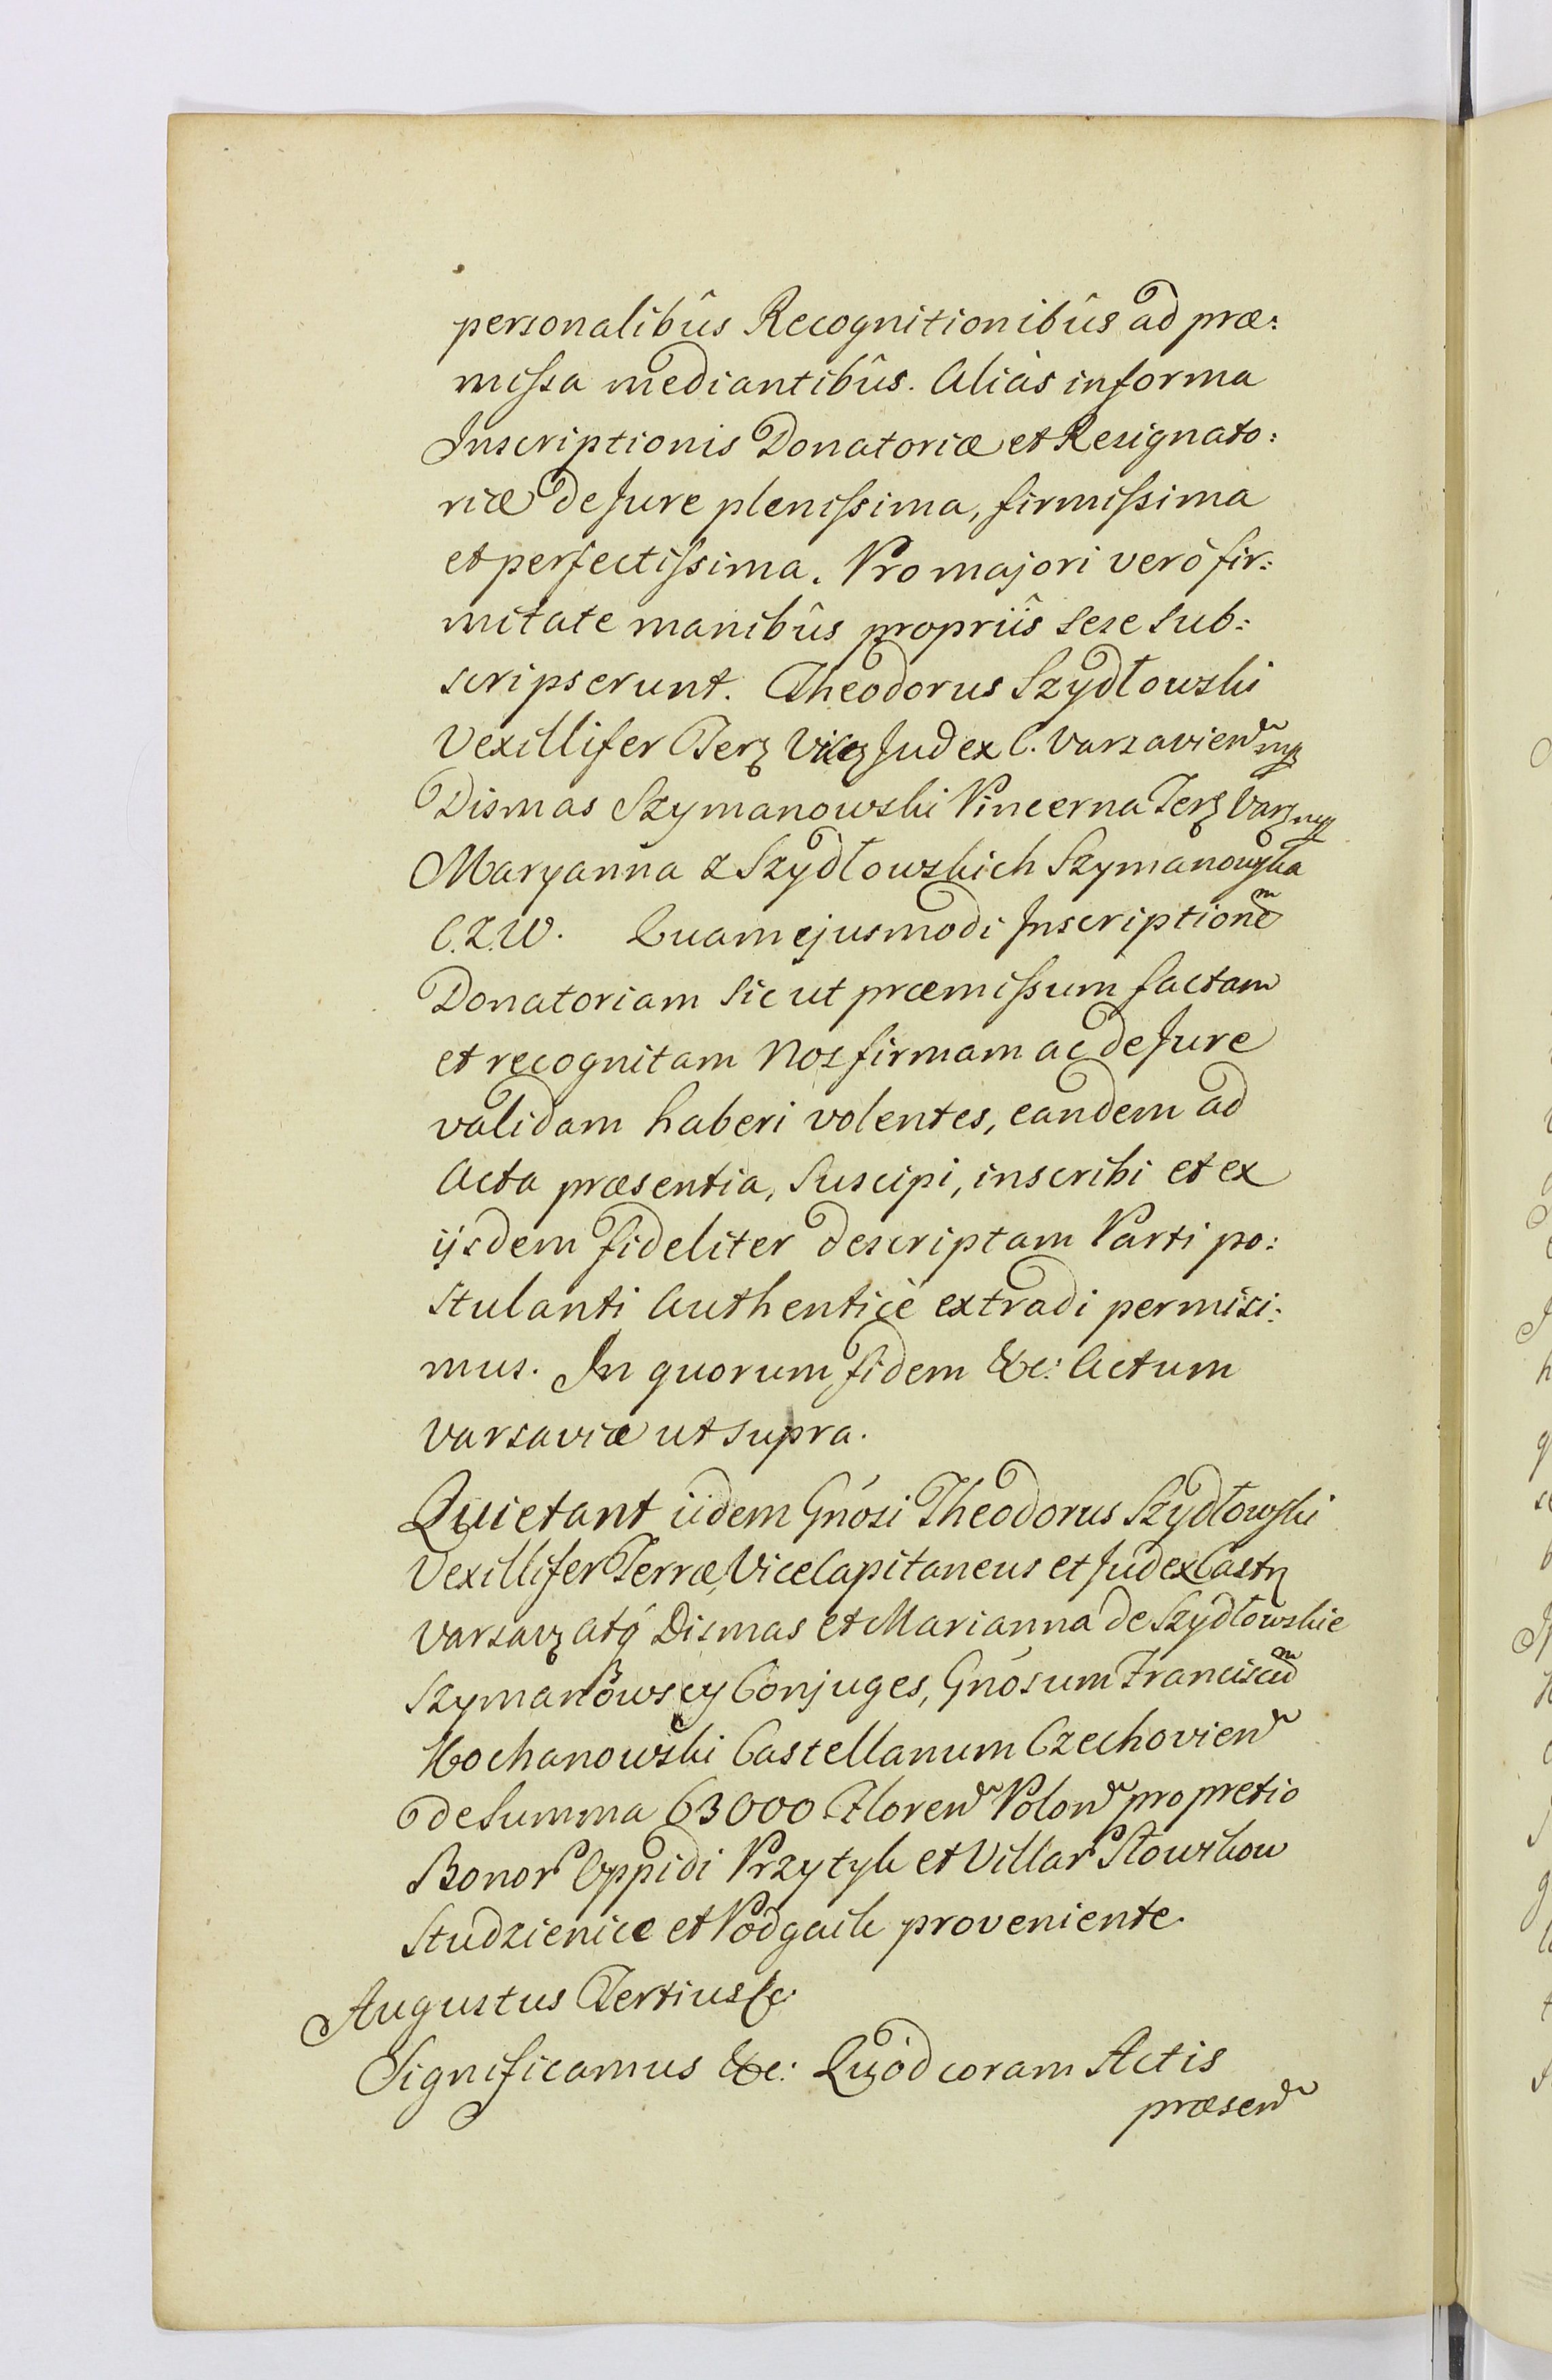 personalibûs Recognitionibûs ad præ:
missa mediantibûs. Aliàs in forma
Inscriptionis Donatoriæ et Resignato:
riæ de Jure plenissima, firmissima
et perfectissima. Pro majori verò fir:
mitate manibûs propriîs sese sub:
scripserunt. Theodorus Szydłowski
Vexillifer Terz Vicez Judex C. Varsavien mp
Dismas Szymanowski Pincerna Terz Varz mp
Maryanna z Szydłowskich Szymanowska
C.Z.W. Quam ejusmodi Inscriptionem
Donatoriam sic ut præmissum factam
et recognitam Nos firmam ac de Jure
validam haberi volentes, eandem ad
Acta præsentia, suscipi, inscribi et ex
ijsdem fideliter descriptam Parti po:
stulanti Authenticè extradi permisi:
mus. In quorum fidem &c: Actum
Varsaviæ ut supra.
Quietant iidem Gnósi Theodorus Szydłowski
Vexillifer Terræ, ViceCapitaneus et Judex Castr
Varsavz atq́ Dismas et Marianna de Szydłowskie
Szymanowscy Conjuges, Gnósum Franciscum
Kochanowski Castellanum Czechovien
de Summa 63000 Floren Polon pro pretio
Bonor Oppidi Przytyk et Villar Słowikow
Studzienice et Podgaik proveniente.
Augustus Tertius &c:
Significamus &c: Quòd coram Actis
præsen